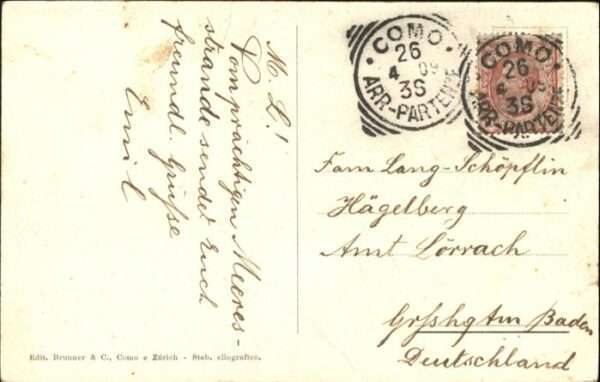 M. L.!
Vom prächtigen Meeres-
strande sendet Euch
freundl. Grüsse
Emil
COMO
26
4 09
3S
ARR-PARTENZE
COMO
26
4 09
3S
ARR-PARTENZE
Fam Lang-Schöpflin
Hägelberg
Amt Lörrach
Grßhgtm Baden
Deutschland
Edit. Brunner & C., Como e Zürich - Stab. eliografico.